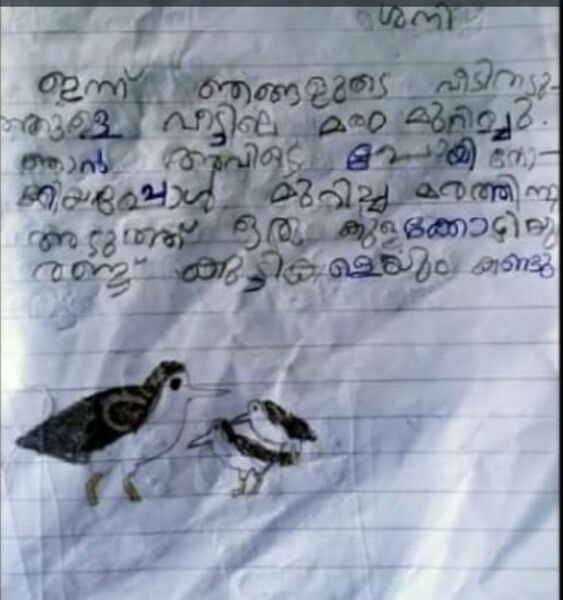 ശനി
ഇന്ന് ഞങ്ങളുടെ വീടിനടു-
ത്തുള്ള വീട്ടിലെ മരം മുറിച്ചു.
ഞാൻ അവിടെ പോയി നോ-
ക്കിയപ്പോൾ മുറിച്ച മരത്തിനു
അടുത്ത് ഒരു കുളക്കോഴിയു
രണ്ട് കുട്ടികളെയും കണ്ടു